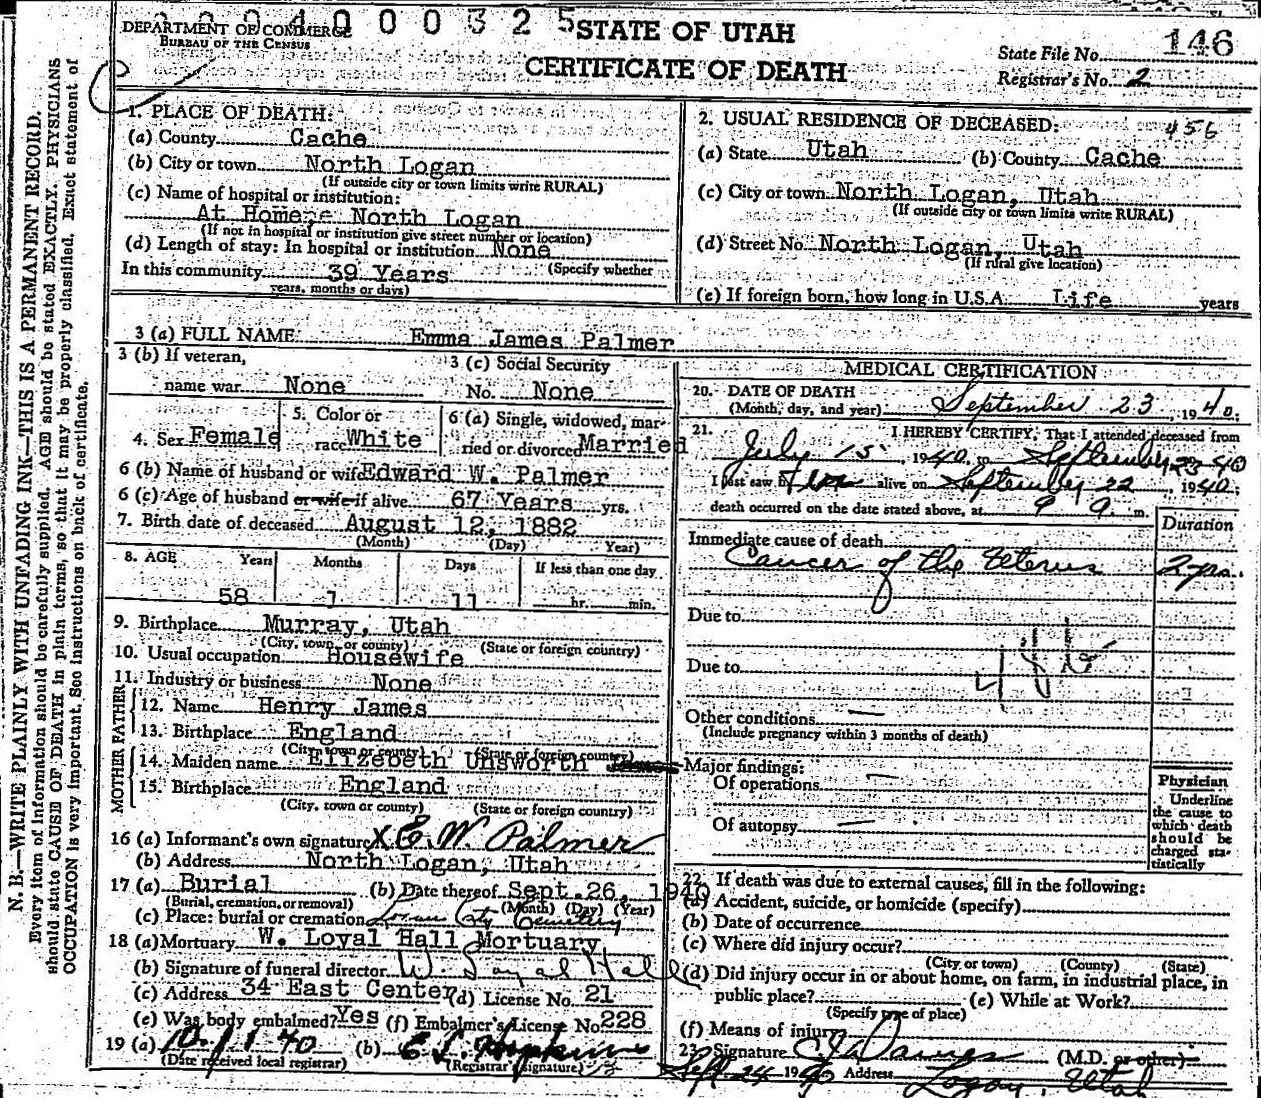 0 4 0 0 0 3 2 5
DEPARTMENT OF COMMERCE
BUREAU OF THE CENSUS
STATE OF UTAH
CERTIFICATE OF DEATH
State File No. 146
Registrar's No. 2
N. B.—WRITE PLAINLY WITH UNFADING INK—THIS IS A PERMANENT RECORD.
Every item of information should be carefully supplied. AGE should be stated EXACTLY. PHYSICIANS
should state CAUSE OF DEATH in plain terms, so that it may be properly classified. Exact statement of
OCCUPATION is very important. See instructions on back of certificate.
1. PLACE OF DEATH:
(a) County Cache
(b) City or town North Logan
(If outside city or town limits write RURAL)
(c) Name of hospital or institution:
At Home North Logan
(If not in hospital or institution give street number or location)
(d) Length of stay: In hospital or institution None
In this community 39 Years (Specify whether
years, months or days)
2. USUAL RESIDENCE OF DECEASED: 456
(a) State Utah (b) County Cache
(c) City or town North Logan, Utah
(If outside city or town limits write RURAL)
(d) Street No. North Logan, Utah
(If rural give location)
(e) If foreign born, how long in U.S.A. Life years
3 (a) FULL NAME Emma James Palmer
3 (b) If veteran, 3 (c) Social Security
name war None No. None
4. Sex Female 5. Color or race White 6 (a) Single, widowed, married or divorced Married
6 (b) Name of husband or wife Edward W. Palmer
6 (c) Age of husband or wife if alive 67 Years yrs.
7. Birth date of deceased August 12, 1882
(Month) (Day) Year)
8. AGE Years Months Days If less than one day
58 1 11 hr. min.
9. Birthplace Murray, Utah
(City, town, or county) (State or foreign country)
10. Usual occupation Housewife
11. Industry or business None
FATHER
12. Name Henry James
13. Birthplace England
(City, town or county) (State or foreign country)
MOTHER
14. Maiden name Elizebeth Unsworth
15. Birthplace England
(City, town or county) (State or foreign country)
16 (a) Informant's own signature X E. W. Palmer
(b) Address North Logan, Utah
17 (a) Burial (b) Date thereof Sept. 26, 1940
(Burial, cremation, or removal) (Month) (Day) (Year)
(c) Place: burial or cremation Logan City Cemetery
18 (a) Mortuary W. Loyal Hall Mortuary
(b) Signature of funeral director W. Loyal Hall
(c) Address 34 East Center (d) License No. 21
(e) Was body embalmed? Yes (f) Embalmer's License No. 228
19 (a) 10/1 40 (b) E L Hopkins
(Date received local registrar) (Registrar signature)
MEDICAL CERTIFICATION
20. DATE OF DEATH
(Month, day, and year) September 23, 1940;
21. I HEREBY CERTIFY, That I attended deceased from
July 15, 1940, to September 23 40
I last saw h er alive on September 22, 1940;
death occurred on the date stated above, at 9 a. m.
Duration
Immediate cause of death
Cancer of the Uterus 2 yrs.
Due to
Due to
Other conditions —
(Include pregnancy within 3 months of death)
Major findings:
Of operations —
Of autopsy —
Physician
Underline
the cause to
which death
should be
charged sta-
tistically
22. If death was due to external causes, fill in the following:
(a) Accident, suicide, or homicide (specify)
(b) Date of occurrence
(c) Where did injury occur?
(City or town) (County) (State)
(d) Did injury occur in or about home, on farm, in industrial place, in
public place? (e) While at Work?
(Specify type of place)
(f) Means of injury
23. Signature (M.D. or other)
Sept. 24 1940 Address Logan, Utah